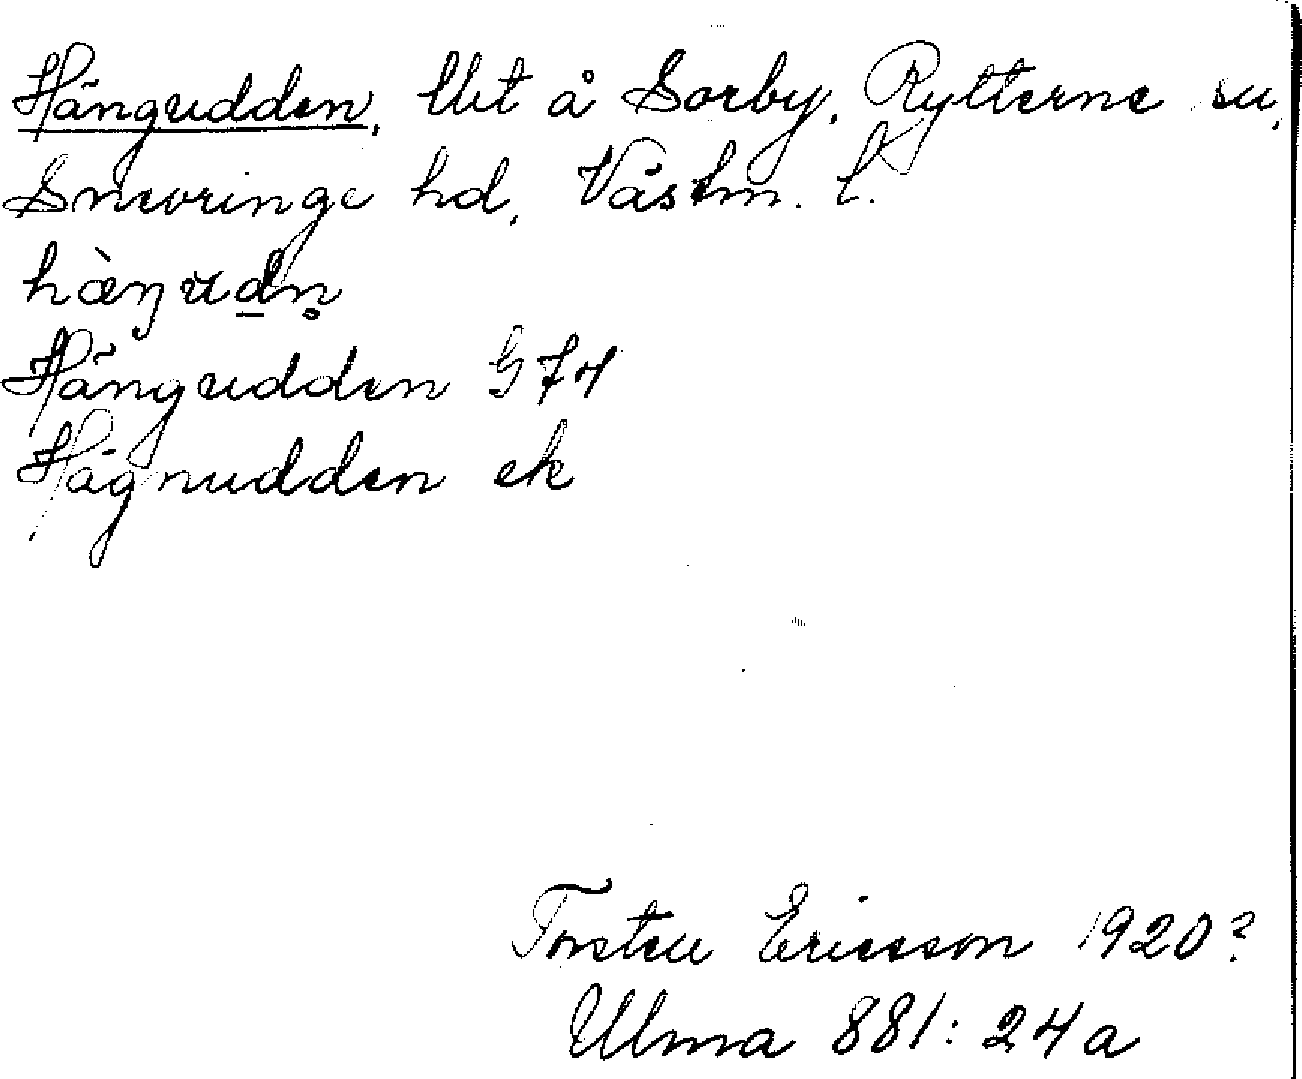 Hängudden, Ut å Sorby, Rytterne sn,
Snevringe hd, Västm. l.
hæ̀ŋudn̥
Hängudden G 74
Hägnudden ek
Torsten Ericsson 1920?
Ulma 881: 24a